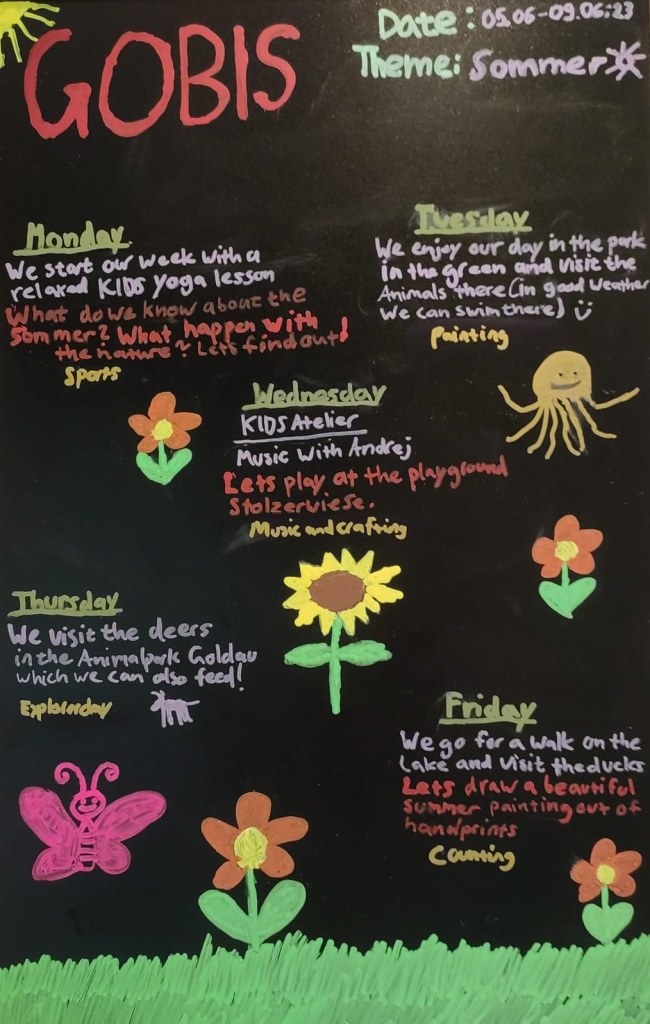 GOBIS
Date: 05.06-09.06.23
Theme: Sommer
Monday
We start our week with a
relaxed KIDS Yoga lesson
What do we know about the
Sommer? What happen with
the nature? Lets find out!
Sports
Tuesday
We enjoy our day in the park
in the green and visit the
Animals there (in good weather
We can swim there) ü
Painting
Wednesday
KIDS Atelier
Music with Andrej
Lets play at the playground
Stolzewiese.
Music and crafting
Thursday
We visit the deers
in the Animalpark Goldau
which we can also feed!
Explorerday
Friday
We go for a walk on the
Lake and visit the ducks
Lets draw a beautiful
summer painting out of
handprints
Counting